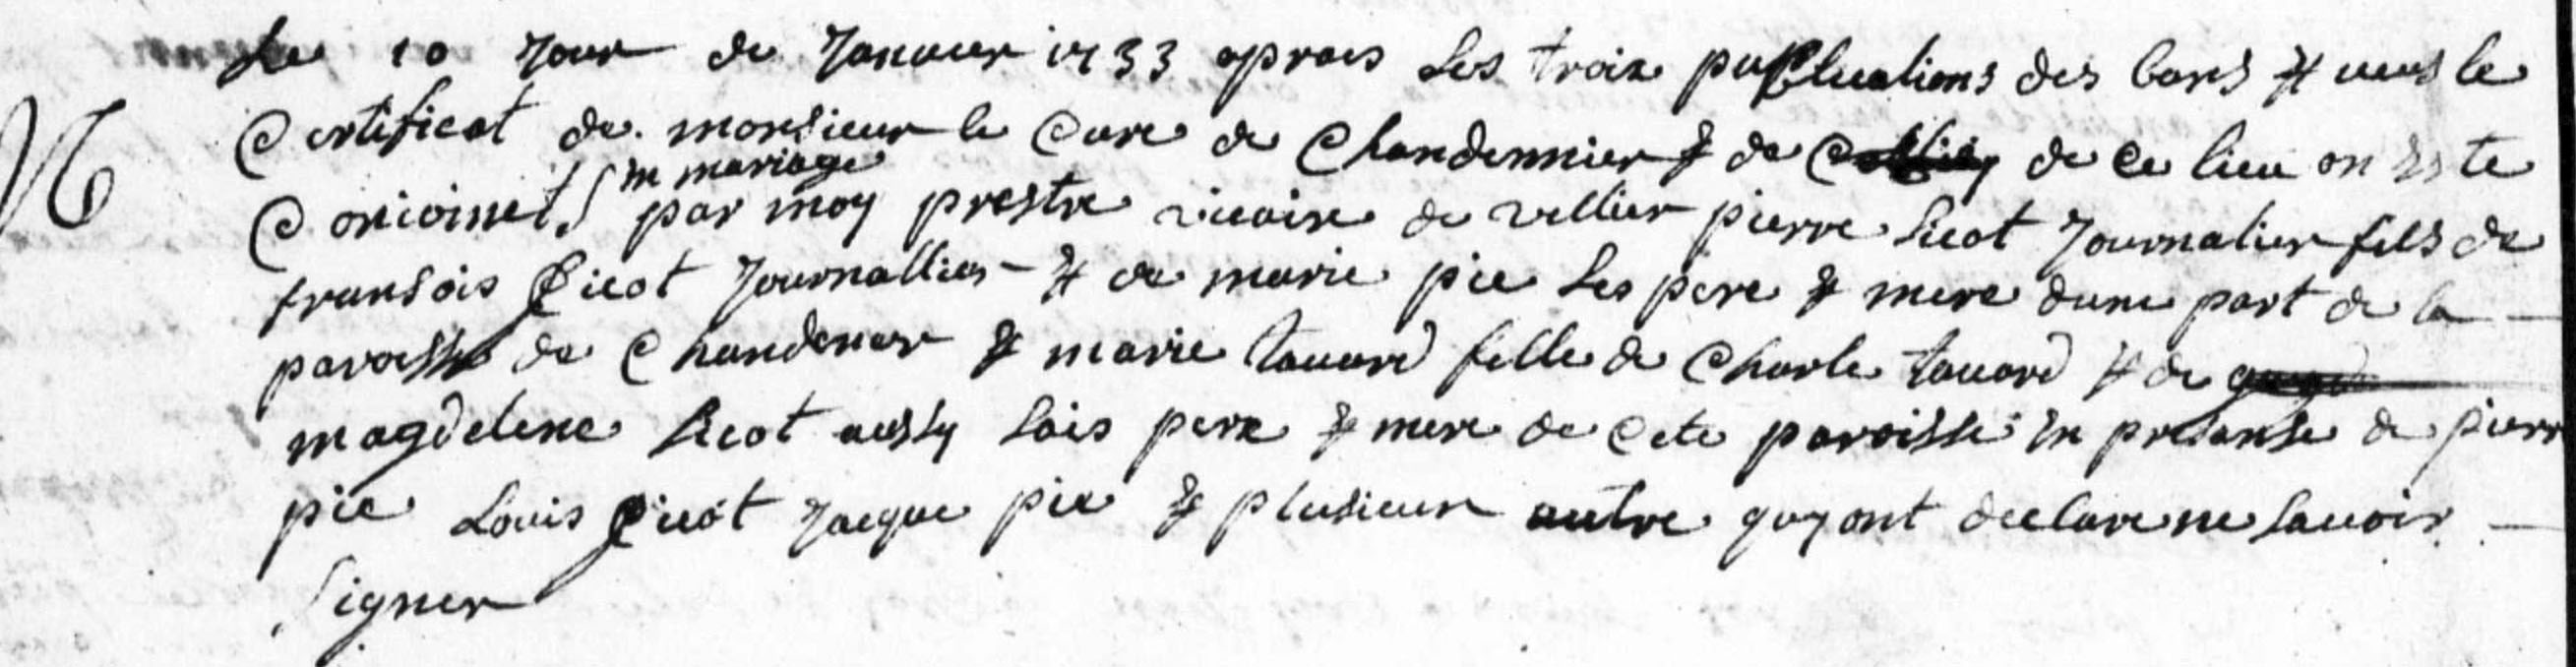 Le 10 Jour de Janvier 1733 apraes Les troix publications des bans & veus le
Certificat de monsieur le Cure de Chandennier & de de ce lieu on este
Conioinct en mariage par moy prestre vicaire de vellier pierre Sicot Journalier fils de
fransois Sicot Journallier - & de marie pie Ses pere & mere dune part de la -
paroisse de Chandener & marie tavard fille de Charle tavard & de
magdelene Sicot aussy Sais pere & mere de Cete paroisse en presanse de pierr
pie Louis Sicot Jacque pie & plusieur autre quy ont declare ne Savoir -
Signer